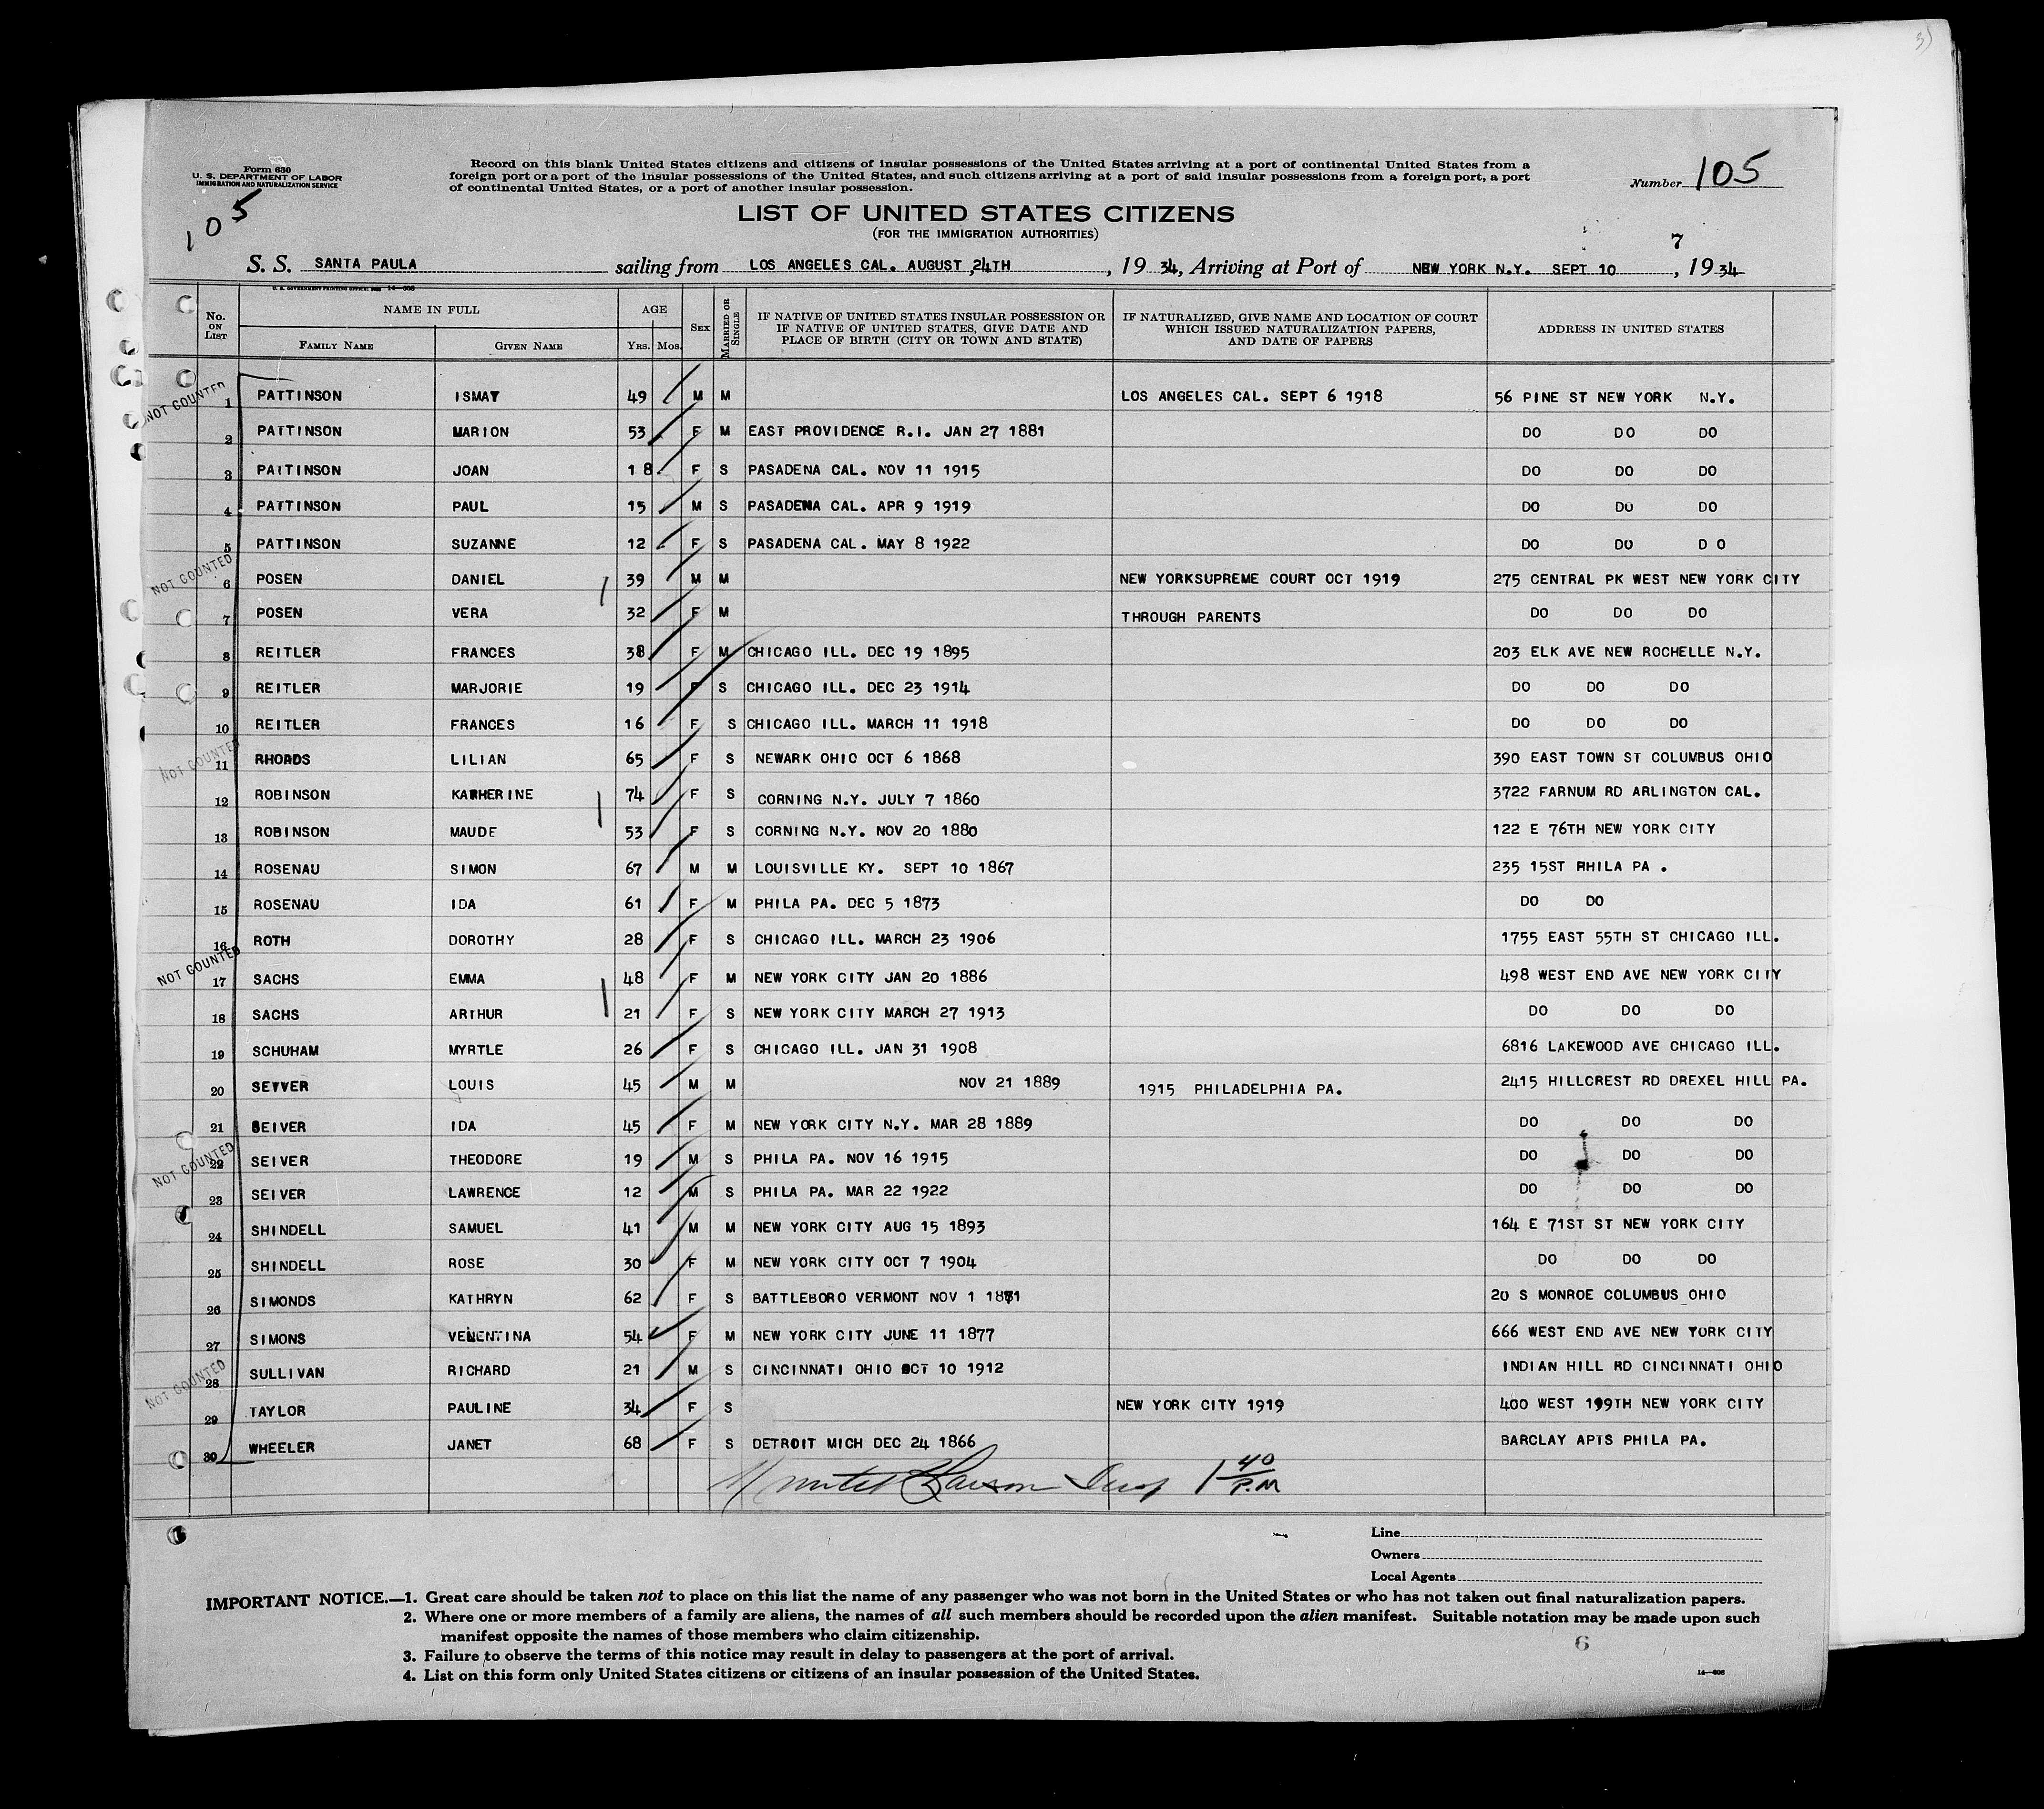 3)
Form 630
U. S. DEPARTMENT OF LABOR
IMMIGRATION AND NATURALIZATION SERVICE
105
Record on this blank United States citizens and citizens of insular possessions of the United States arriving at a port of continental United States from a
foreign port or a port of the insular possessions of the United States, and such citizens arriving at a port of said insular possessions from a foreign port, a port
of continental United States, or a port of another insular possession.
Number 105
LIST OF UNITED STATES CITIZENS
(FOR THE IMMIGRATION AUTHORITIES)
7
S. S. SANTA PAULA sailing from LOS ANGELES CAL. AUGUST ,24TH , 19 34, Arriving at Port of NEW YORK N.Y. SEPT 10 , 19 34
U. S. GOVERNMENT PRINTING OFFICE: 14—608
No. ON LIST NAME IN FULL FAMILY NAME GIVEN NAME AGE YRS. MOS. SEX MARRIED OR SINGLE IF NATIVE OF UNITED STATES INSULAR POSSESSION OR IF NATIVE OF UNITED STATES, GIVE DATE AND PLACE OF BIRTH (CITY OR TOWN AND STATE) IF NATURALIZED, GIVE NAME AND LOCATION OF COURT WHICH ISSUED NATURALIZATION PAPERS, AND DATE OF PAPERS ADDRESS IN UNITED STATES
NOT COUNTED
1 PATTINSON ISMAY 49 M M LOS ANGELES CAL. SEPT 6 1918 56 PINE ST NEW YORK N.Y.
2 PATTINSON MARION 53 F M EAST PROVIDENCE R.I. JAN 27 1881 DO DO DO
3 PATTINSON JOAN 18 F S PASADENA CAL. NOV 11 1915 DO DO DO
4 PATTINSON PAUL 15 M S PASADENA CAL. APR 9 1919 DO DO DO
5 PATTINSON SUZANNE 12 F S PASADENA CAL. MAY 8 1922 DO DO D O
NOT COUNTED
6 POSEN DANIEL 39 M M NEW YORKSUPREME COURT OCT 1919 275 CENTRAL PK WEST NEW YORK CITY
7 POSEN VERA 32 F M THROUGH PARENTS DO DO DO
8 REITLER FRANCES 38 F M CHICAGO ILL. DEC 19 1895 203 ELK AVE NEW ROCHELLE N.Y.
9 REITLER MARJORIE 19 F S CHICAGO ILL. DEC 23 1914 DO DO DO
10 REITLER FRANCES 16 F S CHICAGO ILL. MARCH 11 1918 DO DO DO
NOT COUNTED
11 RHOADS LILIAN 65 F S NEWARK OHIO OCT 6 1868 390 EAST TOWN ST COLUMBUS OHIO
12 ROBINSON KATHERINE 74 F S CORNING N.Y. JULY 7 1860 3722 FARNUM RD ARLINGTON CAL.
13 ROBINSON MAUDE 53 F S CORNING N.Y. NOV 20 1880 122 E 76TH NEW YORK CITY
14 ROSENAU SIMON 67 M M LOUISVILLE KY. SEPT 10 1867 235 15ST PHILA PA .
15 ROSENAU IDA 61 F M PHILA PA. DEC 5 1873 DO DO
16 ROTH DOROTHY 28 F S CHICAGO ILL. MARCH 23 1906 1755 EAST 55TH ST CHICAGO ILL.
NOT COUNTED
17 SACHS EMMA 48 F M NEW YORK CITY JAN 20 1886 498 WEST END AVE NEW YORK CITY
18 SACHS ARTHUR 21 F S NEW YORK CITY MARCH 27 1913 DO DO DO
19 SCHUHAM MYRTLE 26 F S CHICAGO ILL. JAN 31 1908 6816 LAKEWOOD AVE CHICAGO ILL.
20 LOUIS 45 M M NOV 21 1889 1915 PHILADELPHIA PA. 2415 HILLCREST RD DREXEL HILL PA.
21 SEIVER IDA 45 F M NEW YORK CITY N.Y. MAR 28 1889 DO DO DO
NOT COUNTED
22 SEIVER THEODORE 19 M S PHILA PA. NOV 16 1915 DO DO DO
23 SEIVER LAWRENCE 12 M S PHILA PA. MAR 22 1922 DO DO DO
24 SHINDELL SAMUEL 41 M M NEW YORK CITY AUG 15 1893 164 E 71ST ST NEW YORK CITY
25 SHINDELL ROSE 30 F M NEW YORK CITY OCT 7 1904 DO DO DO
26 SIMONDS KATHRYN 62 F S BATTLEBORO VERMONT NOV 1 1871 20 S MONROE COLUMBUS OHIO
27 SIMONS VELENTINA 54 F M NEW YORK CITY JUNE 11 1877 666 WEST END AVE NEW YORK CITY
NOT COUNTED
28 SULLIVAN RICHARD 21 M S CINCINNATI OHIO OCT 10 1912 INDIAN HILL RD CINCINNATI OHIO
29 TAYLOR PAULINE 34 F S NEW YORK CITY 1919 400 WEST 119TH NEW YORK CITY
30 WHEELER JANET 68 F S DETROIT MICH DEC 24 1866 BARCLAY APTS PHILA PA.
1 40 P.M
Line
Owners
Local Agents
IMPORTANT NOTICE.—1. Great care should be taken not to place on this list the name of any passenger who was not born in the United States or who has not taken out final naturalization papers.
2. Where one or more members of a family are aliens, the names of all such members should be recorded upon the alien manifest. Suitable notation may be made upon such
manifest opposite the names of those members who claim citizenship.
3. Failure to observe the terms of this notice may result in delay to passengers at the port of arrival.
4. List on this form only United States citizens or citizens of an insular possession of the United States.
6
14—608